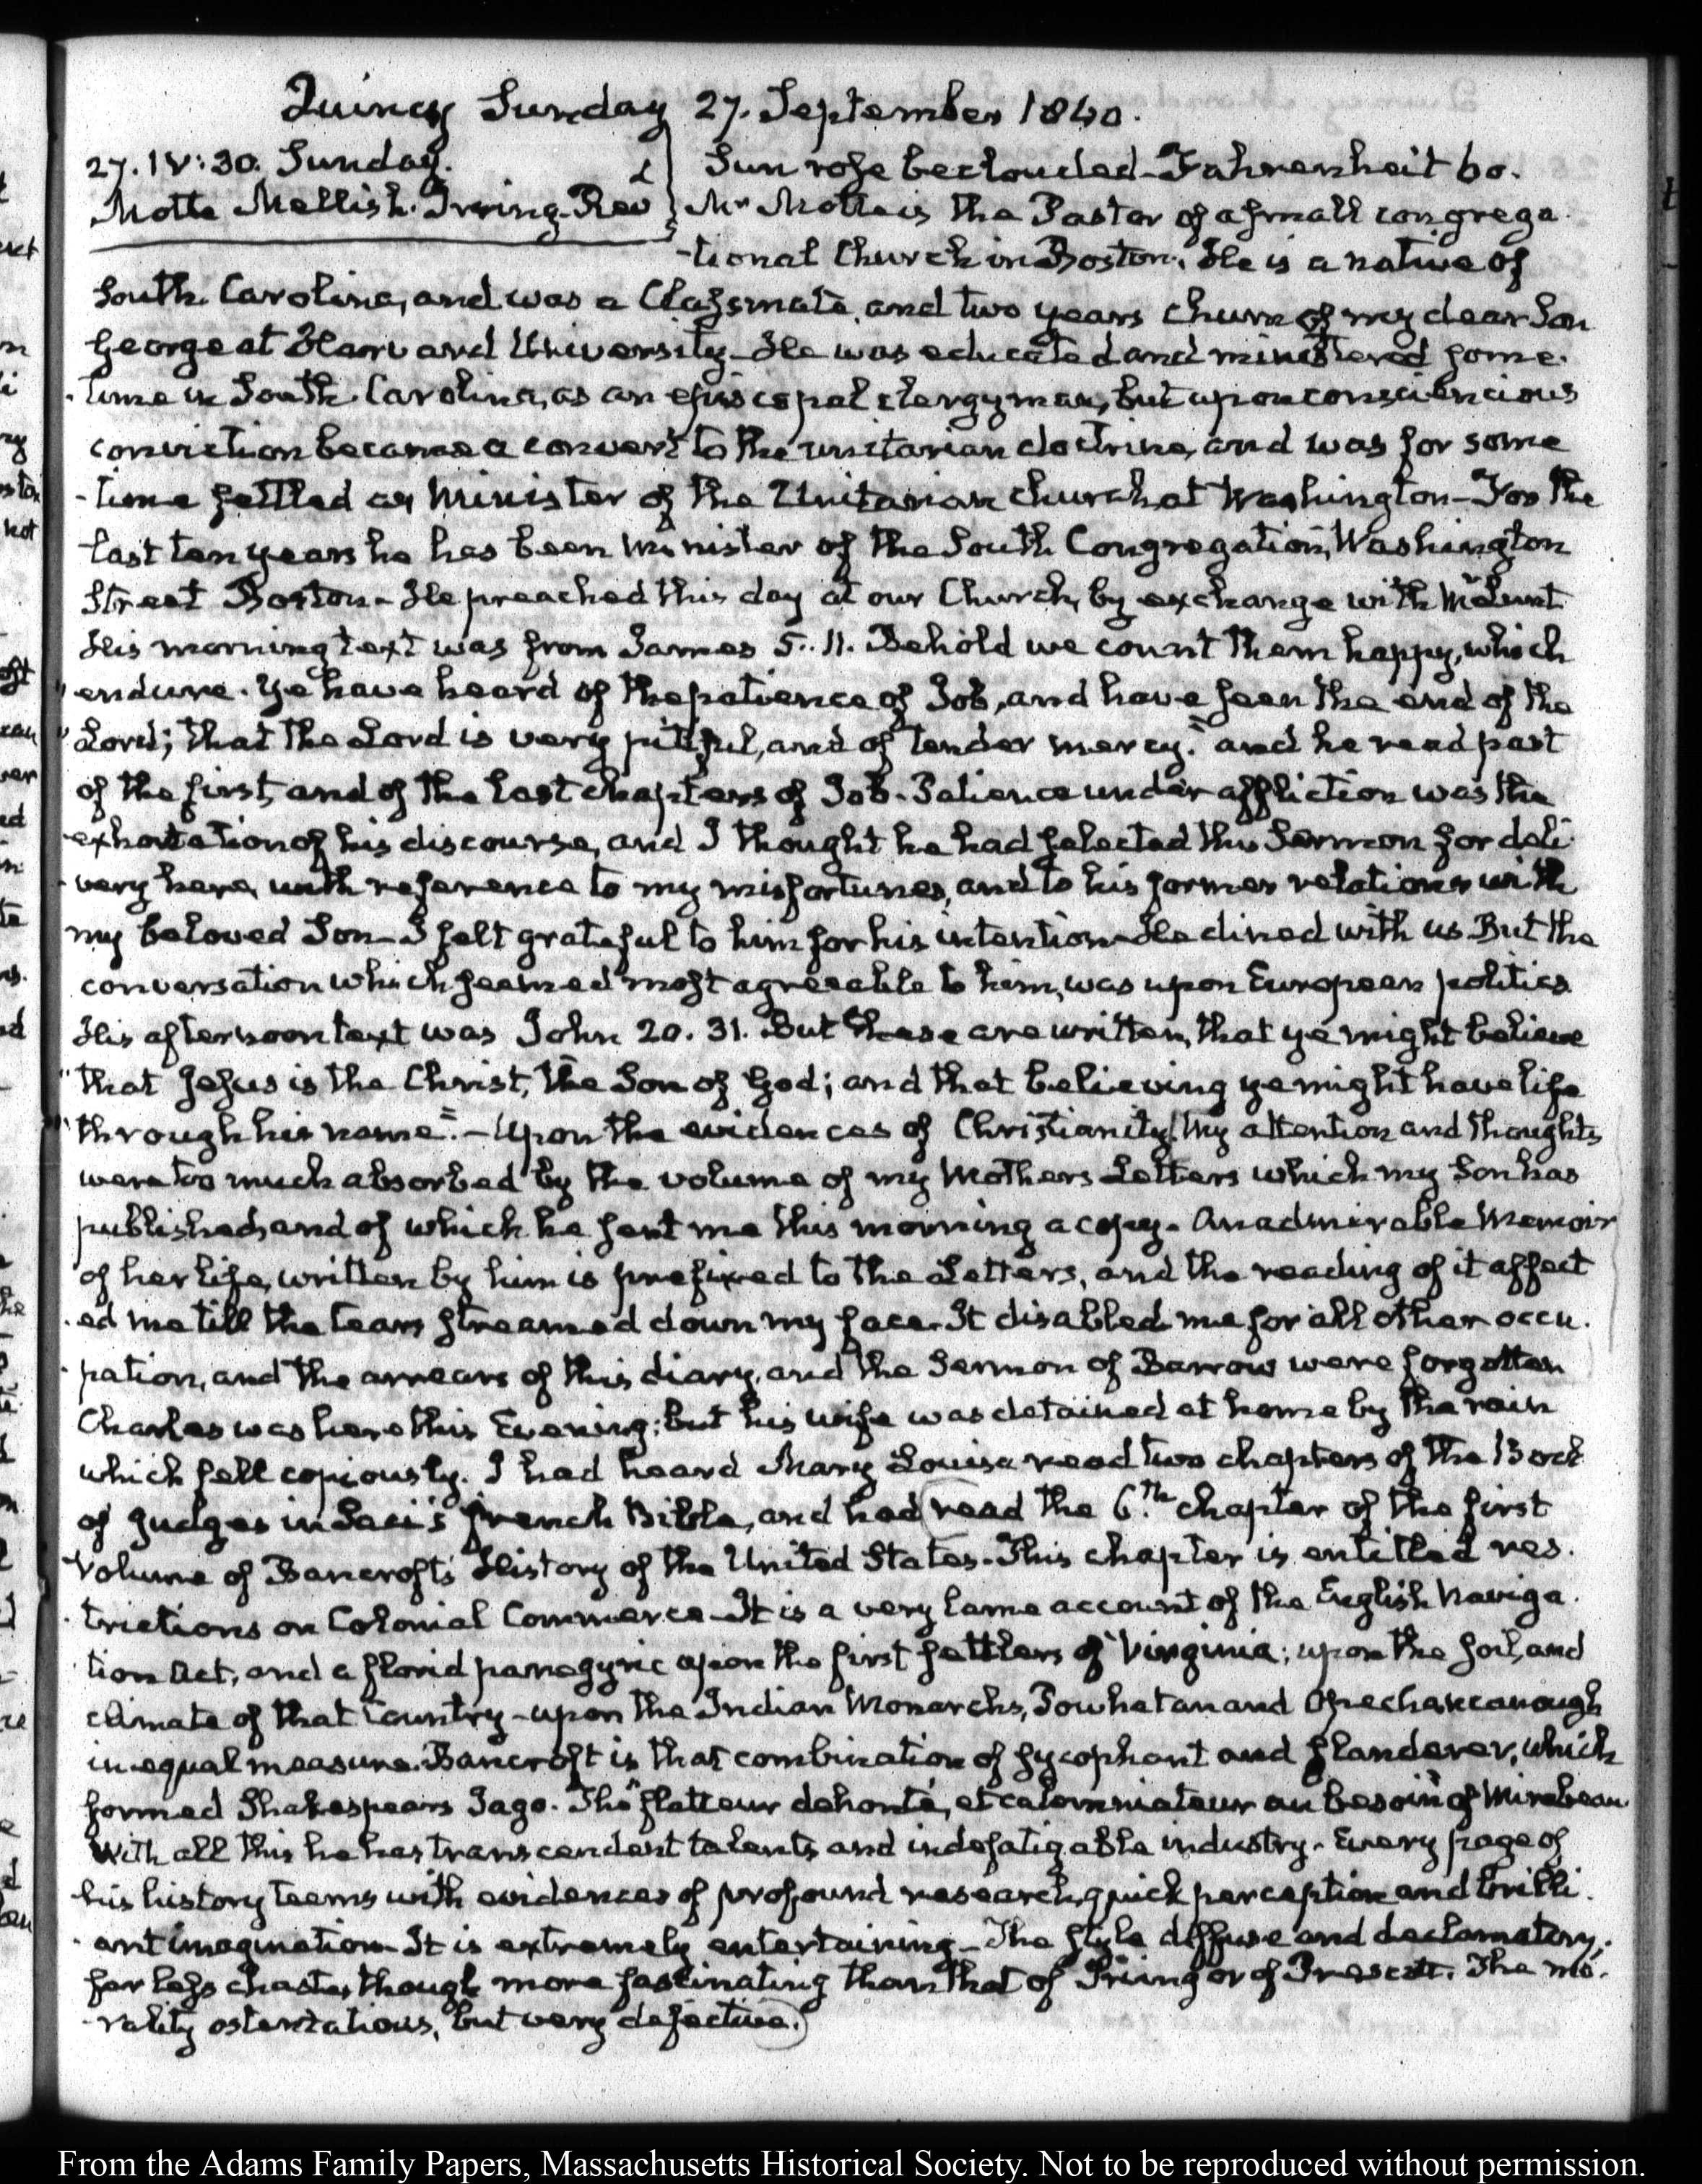 Quincy Sunday 27. September 1840.
27. IV:30. Sunday.
Motte Mellish. Irving Rev
Sun rose beclouded Fahrenheit 60.
Mr Motte is the Pastor of a small congrega-
-tional Church in Boston. He is a native of
South Carolina, and was a Classmate, and two years chum of my dear Son
George at Harvard University. He was educated and ministered some-
-time in South Carolina, as an episcopal clergyman, but upon consciencious
conviction became a convert to the unitarian doctrine, and was for some
-time settled as Minister of the Unitarian church at Washington—For the
last ten years he has been Minister of the South Congregation, Washington
Street Boston—He preached this day at our Church, by exchange with Mr Lunt
His morning text was from James 5. 11. Behold we count them happy, which
"endure. Ye have heard of the patience of Job, and have seen the end of the
"Lord; that the Lord is very pitiful, and of tender mercy." and he read part
of the first, and of the last chapters of Job. Patience under affliction was the
exhortation of his discourse, and I thought he had selected this Sermon for deli-
-very here, with reference to my misfortunes, and to his former relations with
my beloved Son—I felt grateful to him for his intention—He dined with us But the
conversation which seemed most agreeable to him, was upon European politics
His afternoon text was John 20. 31. But these are written, that ye might believe
"that Jesus is the Christ, the Son of God; and that believing ye might have life
"through his name."—Upon the evidences of Christianity. My attention and thoughts
were too much absorbed by the volume of my Mothers Letters which my Son has
published, and of which he sent me this morning a copy. An admirable Memoir
of her life, written by him is prefixed to the Letters, and the reading of it affect
-ed me till the tears streamed down my face. It disabled me for all other occu-
-pation, and the arrears of this diary, and the Sermon of Barrow were forgotten
Charles was here this Evening; but his wife was detained at home by the rain
which fell copiously. I had heard Mary Louisa read two chapters of the Book
of Judges in Saci's french Bible, and had read the 6.th chapter of the first
Volume of Bancroft's History of the United States. This chapter is entitled res-
-trictions on Colonial Commerce—It is a very lame account of the English Naviga-
-tion Act, and a florid panegyric upon the first settlers of Virginia; upon the soil, and
climate of that Country—upon the Indian Monarchs, Powhatan and Opechancanough
in equal measure. Bancroft is that combination of sycophant and slanderer, which
formed Shakespears Iago. The "flatteur dehonté, et calomniateur au besoin" of Mirabeau
With all this he has transcendent talents and indefatigable industry. Every page of
his history teems with evidences of profound research, quick perception and brilli-
-ant imagination—It is extremely entertaining—The style diffuse and declamatory,
far less chaste, though more fascinating than that of Irving or of Prescott. The mo-
-rality ostentatious, but very defective.
From the Adams Family Papers, Massachusetts Historical Society. Not to be reproduced without permission.